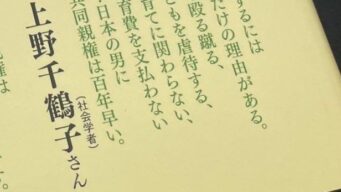 するには
だけの理由がある。
殴る蹴る、
どもを虐待する、
育てに関わらない、
育費を支払わない
日本の男に
共同親権は百年早い。
上野千鶴子さん
(社会学者)